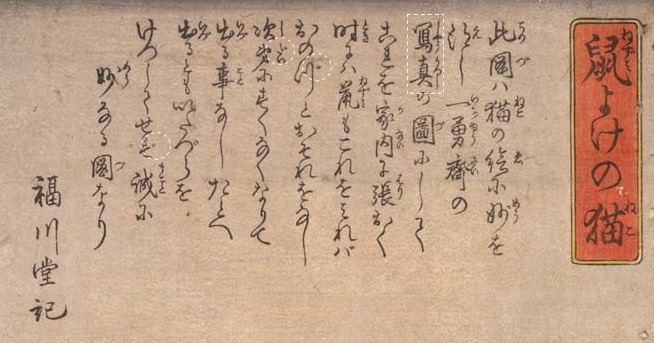 鼠よけの猫
此圖ハ猫の絵に妙を
得し一勇齋の
寫真の圖にして
これを家内に張おく
時ハ鼠もこれをみれバ
おのづとおそれをなし
次第にすくなくなりて
出る事なしたとへ
出るともいたづらを
けつしてせず誠に
妙なる圖なり
福川堂記